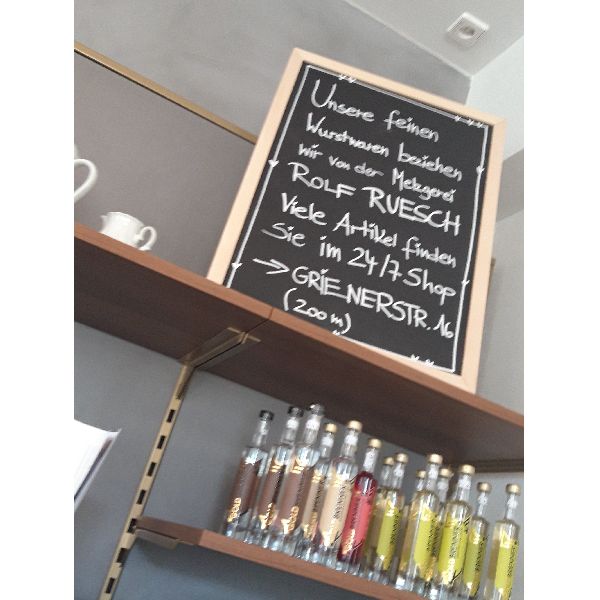 Unsere feinen
Wurstwaren beziehen
wir von der Metzgerei
ROLF RUESCH
Viele Artikel finden
Sie im 24/7 Shop
→ GRIENERSTR. 16
(200 m)
GOLD